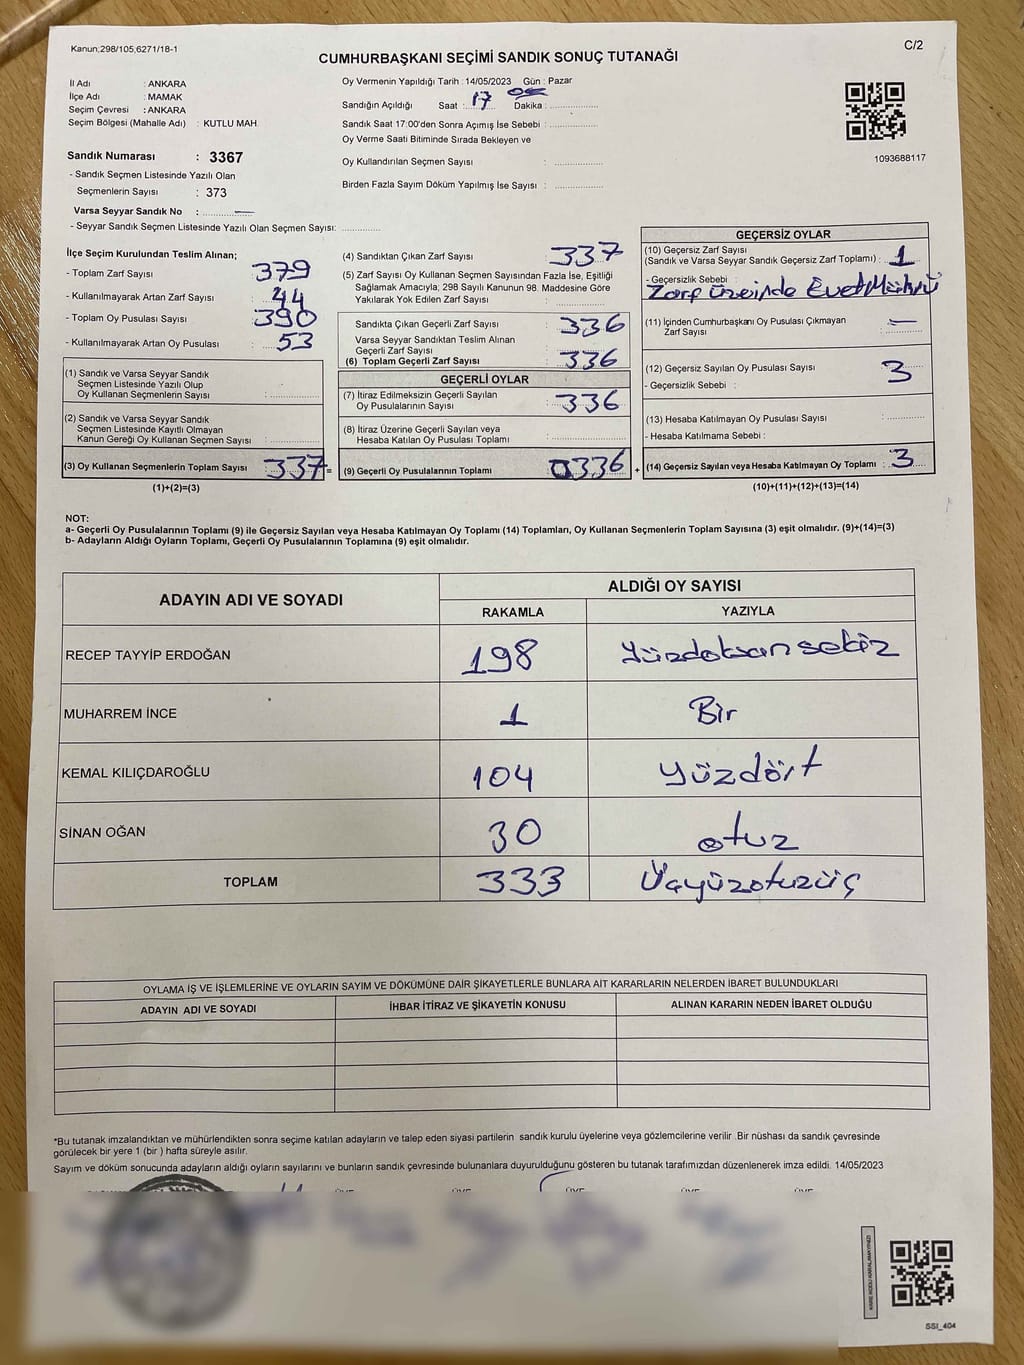 Kanun;298/105,6271/18-1
C/2
CUMHURBAŞKANI SEÇİMİ SANDIK SONUÇ TUTANAĞI
İl Adı : ANKARA
İlçe Adı : MAMAK
Seçim Çevresi : ANKARA
Seçim Bölgesi (Mahalle Adı) : KUTLU MAH.
Oy Vermenin Yapıldığı Tarih : 14/05/2023 Gün : Pazar
Sandığın Açıldığı Saat : 17 Dakika :
Sandık Saat 17:00'den Sonra Açımış İse Sebebi :
Oy Verme Saati Bitiminde Sırada Bekleyen ve
Oy Kullandırılan Seçmen Sayısı :
Birden Fazla Sayım Döküm Yapılmış İse Sayısı :
1093688117
Sandık Numarası : 3367
- Sandık Seçmen Listesinde Yazılı Olan
Seçmenlerin Sayısı : 373
Varsa Seyyar Sandık No : —
- Seyyar Sandık Seçmen Listesinde Yazılı Olan Seçmen Sayısı:
İlçe Seçim Kurulundan Teslim Alınan;
- Toplam Zarf Sayısı : 379
- Kullanılmayarak Artan Zarf Sayısı : 44
- Toplam Oy Pusulası Sayısı : 390
- Kullanılmayarak Artan Oy Pusulası : 53
(1) Sandık ve Varsa Seyyar Sandık
Seçmen Listesinde Yazılı Olup
Oy Kullanan Seçmenlerin Sayısı :
(2) Sandık ve Varsa Seyyar Sandık
Seçmen Listesinde Kayıtlı Olmayan
Kanun Gereği Oy Kullanan Seçmen Sayısı :
(3) Oy Kullanan Seçmenlerin Toplam Sayısı : 337 =
(1)+(2)=(3)
(4) Sandıktan Çıkan Zarf Sayısı : 337
(5) Zarf Sayısı Oy Kullanan Seçmen Sayısından Fazla İse, Eşitliği
Sağlamak Amacıyla; 298 Sayılı Kanunun 98. Maddesine Göre
Yakılarak Yok Edilen Zarf Sayısı :
Sandıkta Çıkan Geçerli Zarf Sayısı : 336
Varsa Seyyar Sandıktan Teslim Alınan
Geçerli Zarf Sayısı :
(6) Toplam Geçerli Zarf Sayısı : 336
GEÇERLİ OYLAR
(7) İtiraz Edilmeksizin Geçerli Sayılan
Oy Pusulalarının Sayısı : 336
(8) İtiraz Üzerine Geçerli Sayılan veya
Hesaba Katılan Oy Pusulası Toplamı :
(9) Geçerli Oy Pusulalarının Toplamı 0336 +
GEÇERSİZ OYLAR
(10) Geçersiz Zarf Sayısı
(Sandık ve Varsa Seyyar Sandık Geçersiz Zarf Toplamı) : 1
- Geçersizlik Sebebi :
Zarf Üzerinde Evet Mührü
(11) İçinden Cumhurbaşkanı Oy Pusulası Çıkmayan
Zarf Sayısı : —
(12) Geçersiz Sayılan Oy Pusulası Sayısı : 3
- Geçersizlik Sebebi :
(13) Hesaba Katılmayan Oy Pusulası Sayısı :
- Hesaba Katılmama Sebebi :
(14) Geçersiz Sayılan veya Hesaba Katılmayan Oy Toplamı : 3
(10)+(11)+(12)+(13)=(14)
NOT:
a- Geçerli Oy Pusulalarının Toplamı (9) ile Geçersiz Sayılan veya Hesaba Katılmayan Oy Toplamı (14) Toplamları, Oy Kullanan Seçmenlerin Toplam Sayısına (3) eşit olmalıdır. (9)+(14)=(3)
b- Adayların Aldığı Oyların Toplamı, Geçerli Oy Pusulalarının Toplamına (9) eşit olmalıdır.
ADAYIN ADI VE SOYADI
ALDIĞI OY SAYISI
RAKAMLA YAZIYLA
RECEP TAYYİP ERDOĞAN 198 Yüzdoksansekiz
MUHARREM İNCE 1 Bir
KEMAL KILIÇDAROĞLU 104 Yüzdört
SİNAN OĞAN 30 otuz
TOPLAM 333 Üçyüzotuzüç
OYLAMA İŞ VE İŞLEMLERİNE VE OYLARIN SAYIM VE DÖKÜMÜNE DAİR ŞİKAYETLERLE BUNLARA AİT KARARLARIN NELERDEN İBARET BULUNDUKLARI
ADAYIN ADI VE SOYADI İHBAR İTİRAZ VE ŞİKAYETİN KONUSU ALINAN KARARIN NEDEN İBARET OLDUĞU
*Bu tutanak imzalandıktan ve mühürlendikten sonra seçime katılan adayların ve talep eden siyasi partilerin sandık kurulu üyelerine veya gözlemcilerine verilir .Bir nüshası da sandık çevresinde
görülecek bir yere 1 (bir ) hafta süreyle asılır.
Sayım ve döküm sonucunda adayların aldığı oyların sayılarını ve bunların sandık çevresinde bulunanlara duyurulduğunu gösteren bu tutanak tarafımızdan düzenlenerek imza edildi. 14/05/2023
KARE KODU KARALAMAYINIZ!
SSI_404